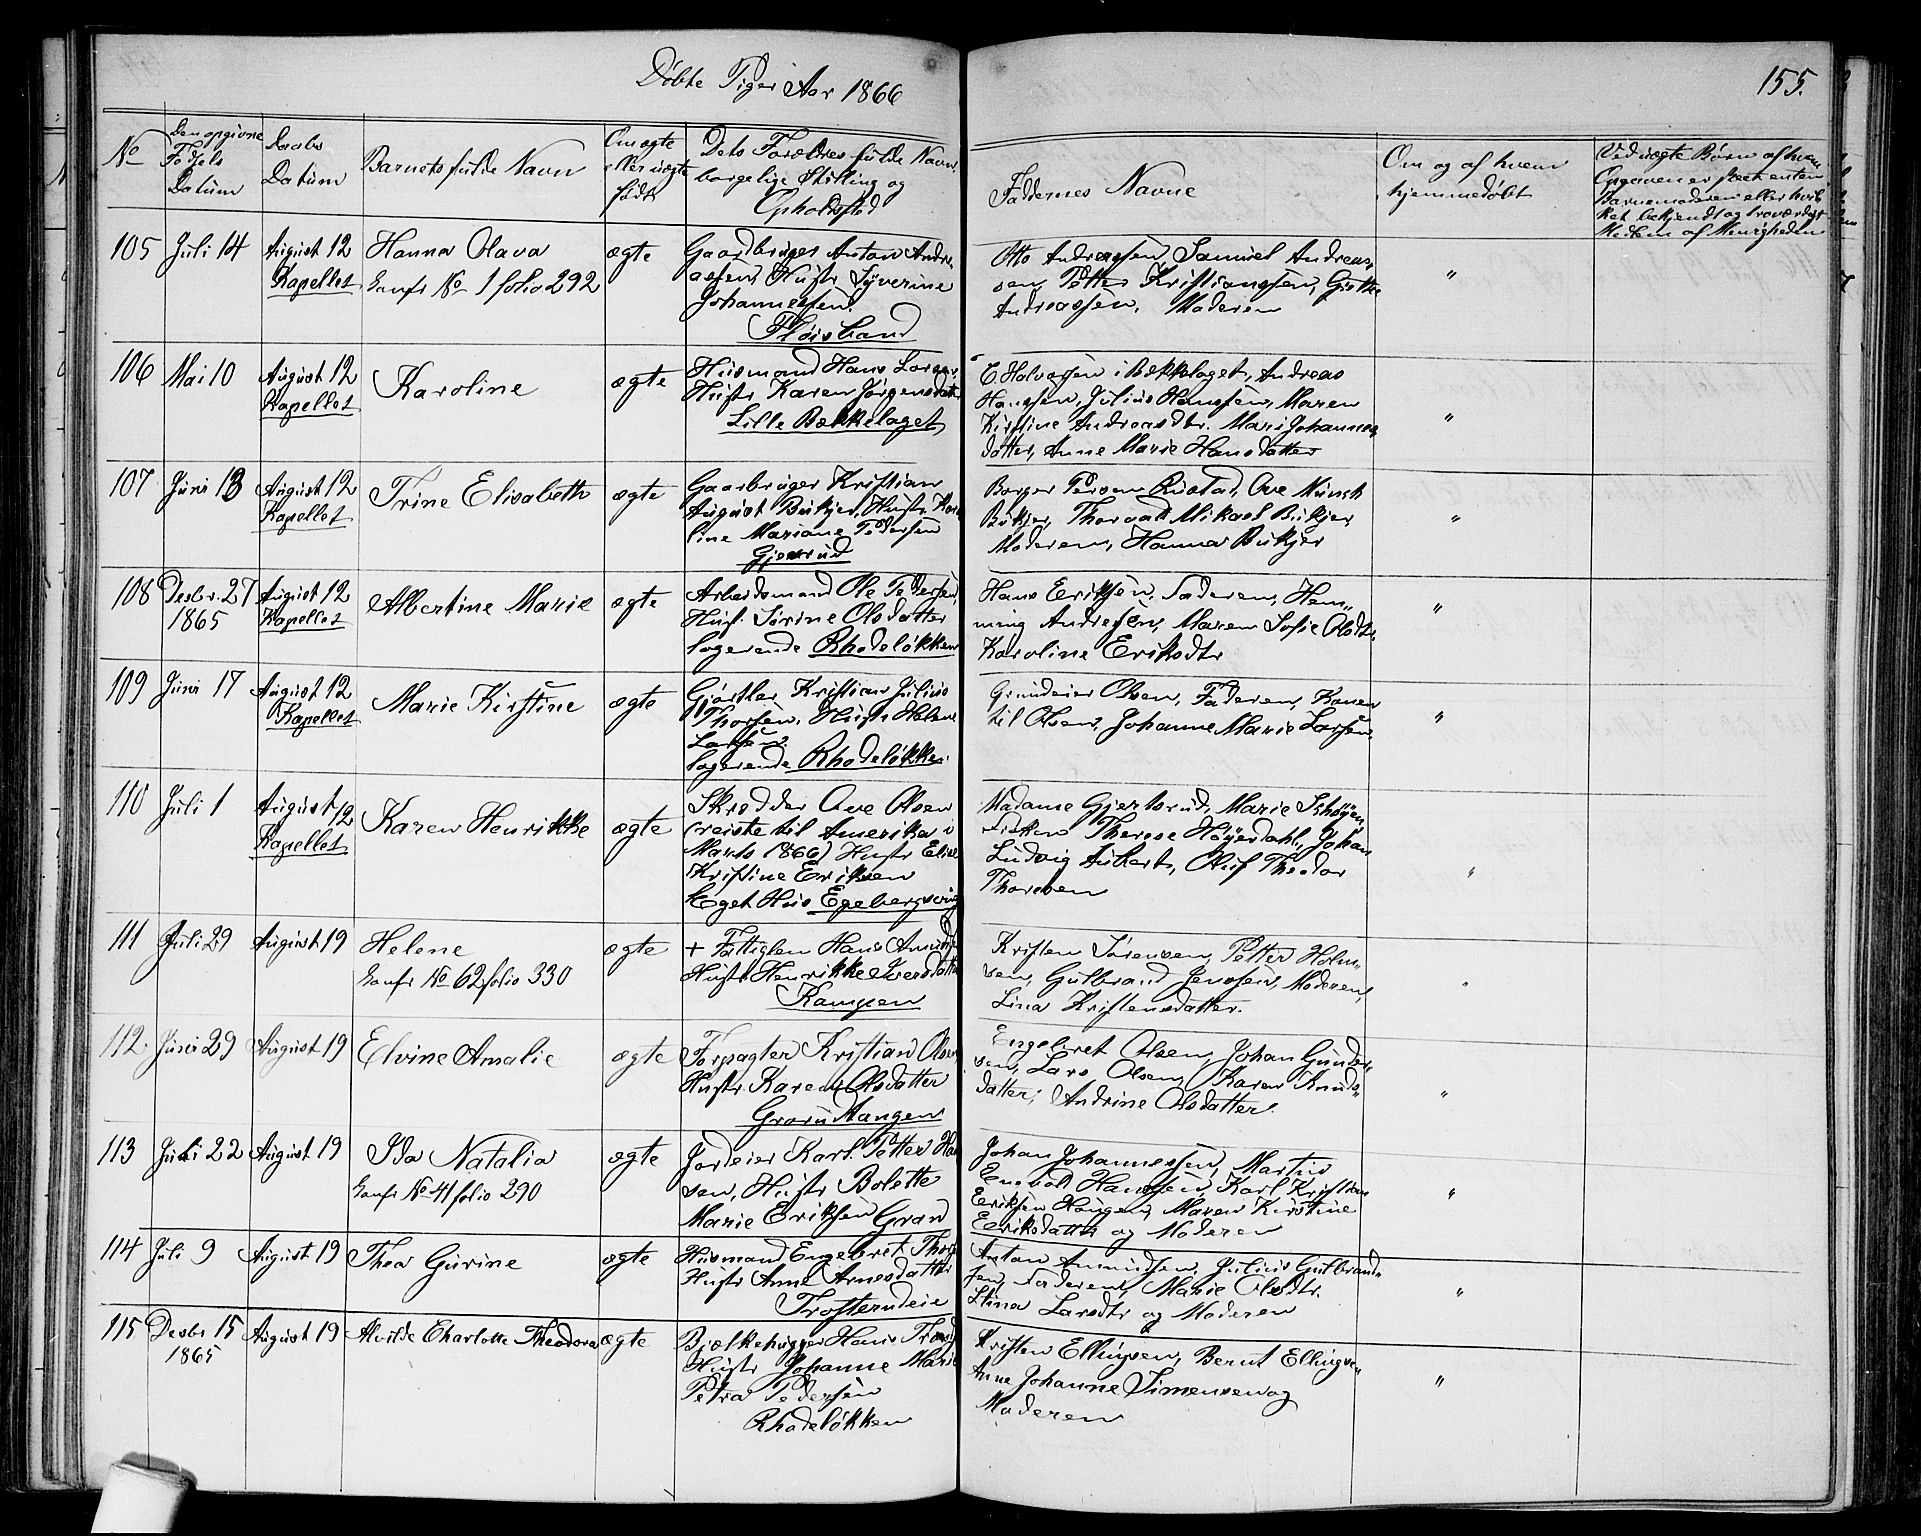 Døbte Piger Aar 1866
155.
No
Den opgivne
Fødsels
Datum
Daabs
Datum
Barnets fulde Navn
Om ægte
eller uægte
født
Dets Forældres fulde Navn,
borgelige Stilling og
Opholdssted
Faddernes Navne
Om og af hvem
hjemmedøbt
Ved uægte Børn af hvem
Opgaven er skeet enten
Barnemoderen eller hvil
ket bekjendt og troværdigt
Medlem af Menigheden
105 Juli 14 August 12 Hanna Olava ægte Gaardbruger Anton Andre
Kapellet Confr No 1 folio 292 assen Hustr Syverine
Johannessen.
Fløisband
Otto Andreassen, Samuel Andreas,
sen, Petter Kristianssen, Grethe
Andreassen, Moderen "
106 Mai 10 August 12 Karoline ægte Husmand Hans Larsen,
Kapellet Hustr Karen Jørgensdatter
Lille Bækkelaget
E. Halvorsen i Bækkelaget, Andreas
Hanssen, Julius Hanssen, Maren
Kirstine Andreasdtr. Mari Johannes,
datter, Anne Marie Hansdatter "
107 Juni 13 August 12 Trine Elisabeth ægte Gaarbruger Kristian
Kapellet August Bukjer, Hustr Karo
line Mariane Pedersen
Gjersrud
Borger Persen Rustad, Ove Munch
Bukjer, Thorvald Mikael Bukjer
Moderen, Hanna Bukjer "
108 Desbr. 27 August 12 Albertine Marie ægte Arbeidsmand Ole Pedersen,
1865 Kapellet Hus. Sørine Olsdatter
logerende Rhodeløkken
Hans Eriksen, Faderen, Hem„
ming Andresen, Maren Sofie Olsdtr.
Karoline Eriksdtr "
109 Juni 17 August 12 Marie Kirstine ægte Gjørtler Kristian Julius
Kapellet Thorsen, Hustr Helene
Larsen.
logerende Rhodeløkken.
Grundeier Olsen, Faderen, Konen
til Olsen, Johanne Marie Larsen. "
110 Juli 1 August 12 Karen Henrikke ægte Skrædder Ove Olsen
Kapellet (reiste til Amerika i
Marts 1866) Hustr Elise
Kristine Eriksen
Eget Hus Egebergsveien
Madame Gjertsrud, Marie Schøyen,
Frøken Therese Høyerdahl, Johan
Ludvig Aubert, Oluf Theodor
Thoresen "
111 Juli 29 August 19 Helene ægte + Fattiglem Hans Amunds
Confr No 62 folio 330 Hustr Henrikke Iversdatter
Kampen
Kristen Sørensen, Petter Holm„
sen, Gulbrand Jenssen, Moderen,
Lina Kristensdatter. "
112. Juni 29 August 19 Elvine Amalie ægte Forpagter Kristian Olsen
Hustr Karen Olsdatter
Grorudlangen
Engebret Olsen, Johan Gunder„
sen, Lars Olsen, Karen Knuds„
datter, Andrine Olsdatter. "
113 Juli 22 August 19 Ida Natalia ægte Jordeier Karl Petter Han
Confr No 41 folio 290 sen, Hustr Bolette
Marie Eriksen Gran
Johan Johannessen, Martin
Engebalt Hanssen, Karl Kristian
Eeriksen Haugen, Maren Kirstine
Eeriksdatter og Moderen "
114 Juli 9 August 19 Thea Gurine ægte Husmand Engebret Thor
Hustr Anne Arnesdatter
Trosterudeie
Anton Amundsen, Julius Gulbrand„
sen, Faderen, Marie Olsdtr.
Stina Larsdtr og Moderen "
115 Desbr 15 August 19 Alvilde Charlotte Theodora ægte Bjælkehugger Hans Trond
1865 Hustr Johanne Marie
Petra Pedersen
Rhodeløkken
Kristen Ellingsen, Bernt Ellingsen
Anne Johanne Simensen og
Moderen "